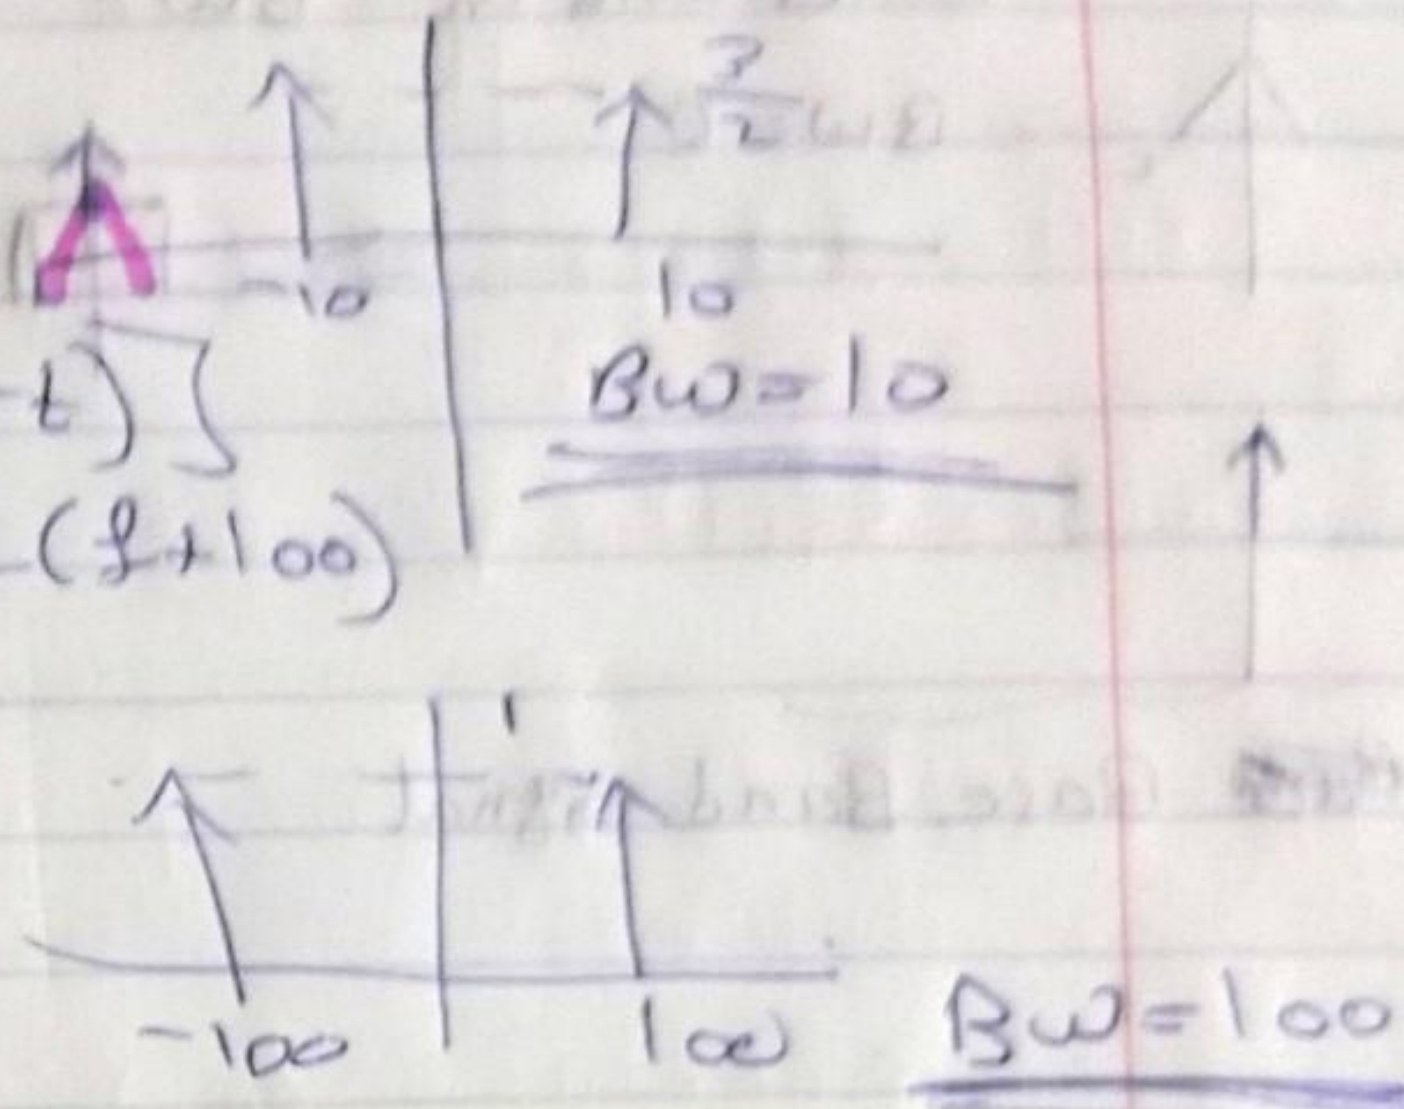 -10
10
BW=10
-t)]
(f+100)
-100
100
BW=100